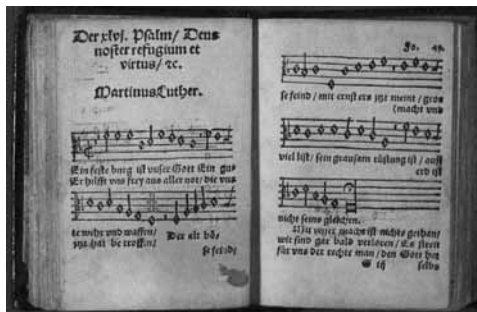 Der xlvj. Psalm/ Deus
noster refugium et
virtus/ ꝛc.
Martinus Luther.
Ein feste burg ist vnser Gott Ein gus
Er hilfft vns frey aus aller not/ die vns
te wehr vnd waffen/
ytzt hat be troffen/
Der alt bö/
se feind/
se feind/ mit ernst ers ytzt meint/ gros
(macht vnd
viel list/ sein grausam rüstung ist/ auff
erd ist
nicht seins gleichen.
Mit vnser macht ist nichts gethan/
wir sind gar bald verloren/ Es streit
fur vns der rechte man/ den Gott hat
selbs